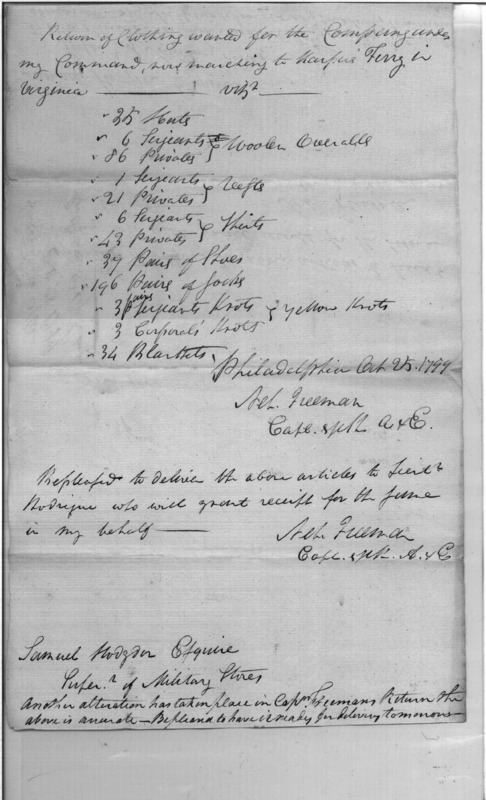 Return of Clothing wanted for the Company under
my Command, now marching to Harpers Ferry in
Virginia ——— vizt
" 35 Hats
" 6 Serjeants } Woolen Overalls
" 86 Privates
" 1 Serjeants } Vests
" 21 Privates
" 6 Serjeants } Shirts
" 43 Privates
" 39 Pairs of Shoes
" 196 Pairs of Socks
" 3 pairs Serjeants Knots } Yellow Knots
" 3 Corporals Knots
" 34 Blankets.
Philadelphia Oct 25. 1799
Neh. Freeman
Capt. A & E.
Be pleased to deliver the above articles to Lieut
Rodrique who will grant receipt for the same
in my behalf —
Neh. Freeman
Capt. A. & E
Samuel Hodgdon Esquire
Super.t of Military Stores
Another alteration has taken place in Capn Freemans Return the
above is accurate — Be pleased to have it ready for delivery tomorrow —